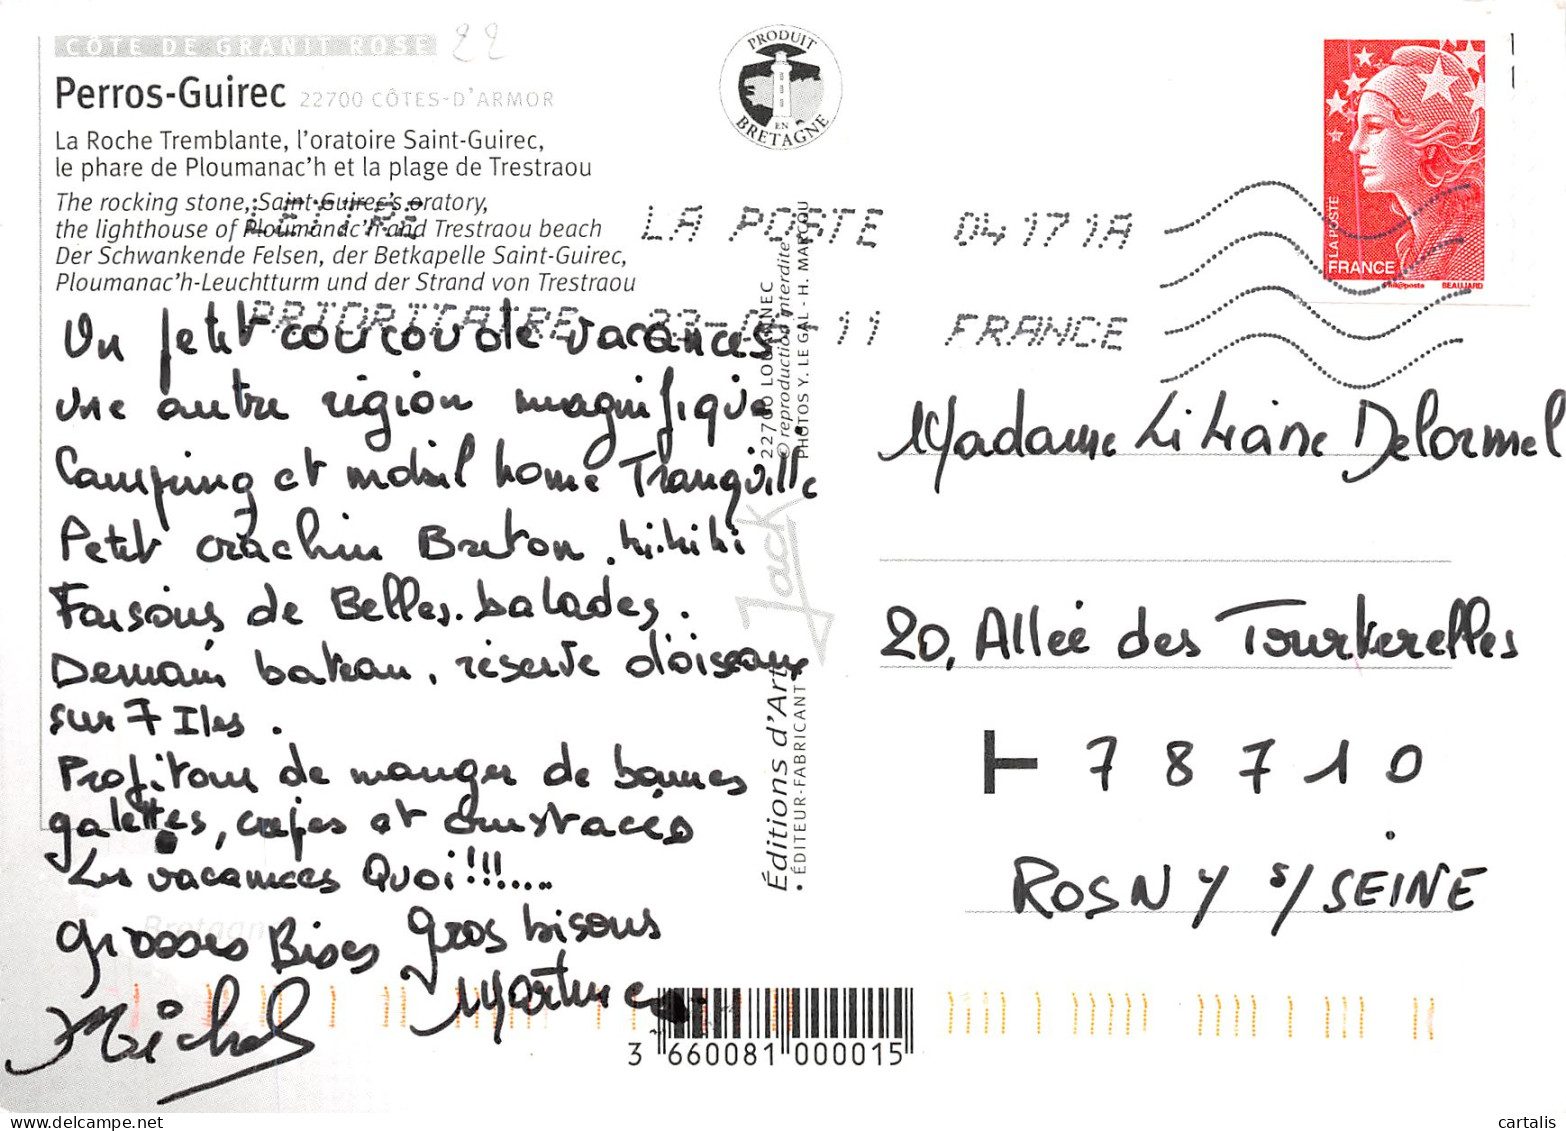 CÔTE DE GRANIT ROSE 22
Perros-Guirec 22700 CÔTES-D'ARMOR
La Roche Tremblante, l'oratoire Saint-Guirec,
le phare de Ploumanac'h et la plage de Trestraou
The rocking stone, Saint-Guirec's oratory,
the lighthouse of Ploumanac'h and Trestraou beach
Der Schwankende Felsen, der Betkapelle Saint-Guirec,
Ploumanac'h-Leuchtturm und der Strand von Trestraou
PRODUIT
EN
BRETAGNE
LETTRE
PRIORITAIRE
LA POSTE 04171A
11 FRANCE
LA POSTE
FRANCE
Phil@poste BEAUJARD
Un petit coucou de vacances
une autre région magnifique.
Camping et mobil home Tranquille
Petit crachin Breton. hi.hi hi
Faisons de Belles. balades.
Demain bateau, réserve d'oiseaux
sur 7 Iles.
Profitons de manger de bonnes
galettes, crêpes et crustacés
Les vacances Quoi!!!.....
Grosses Bises Gros bisous
Michel Martine
22700 LOUANNEC
© reproduction interdite
PHOTOS Y. LE GAL - H. MARCOU
Jack
Éditions d'Art
ÉDITEUR-FABRICANT
Bretagne
Madame Liliane Delormel
20, Allée des Tourterelles
78710
ROSNY s/ SEINE
3 660081 000015